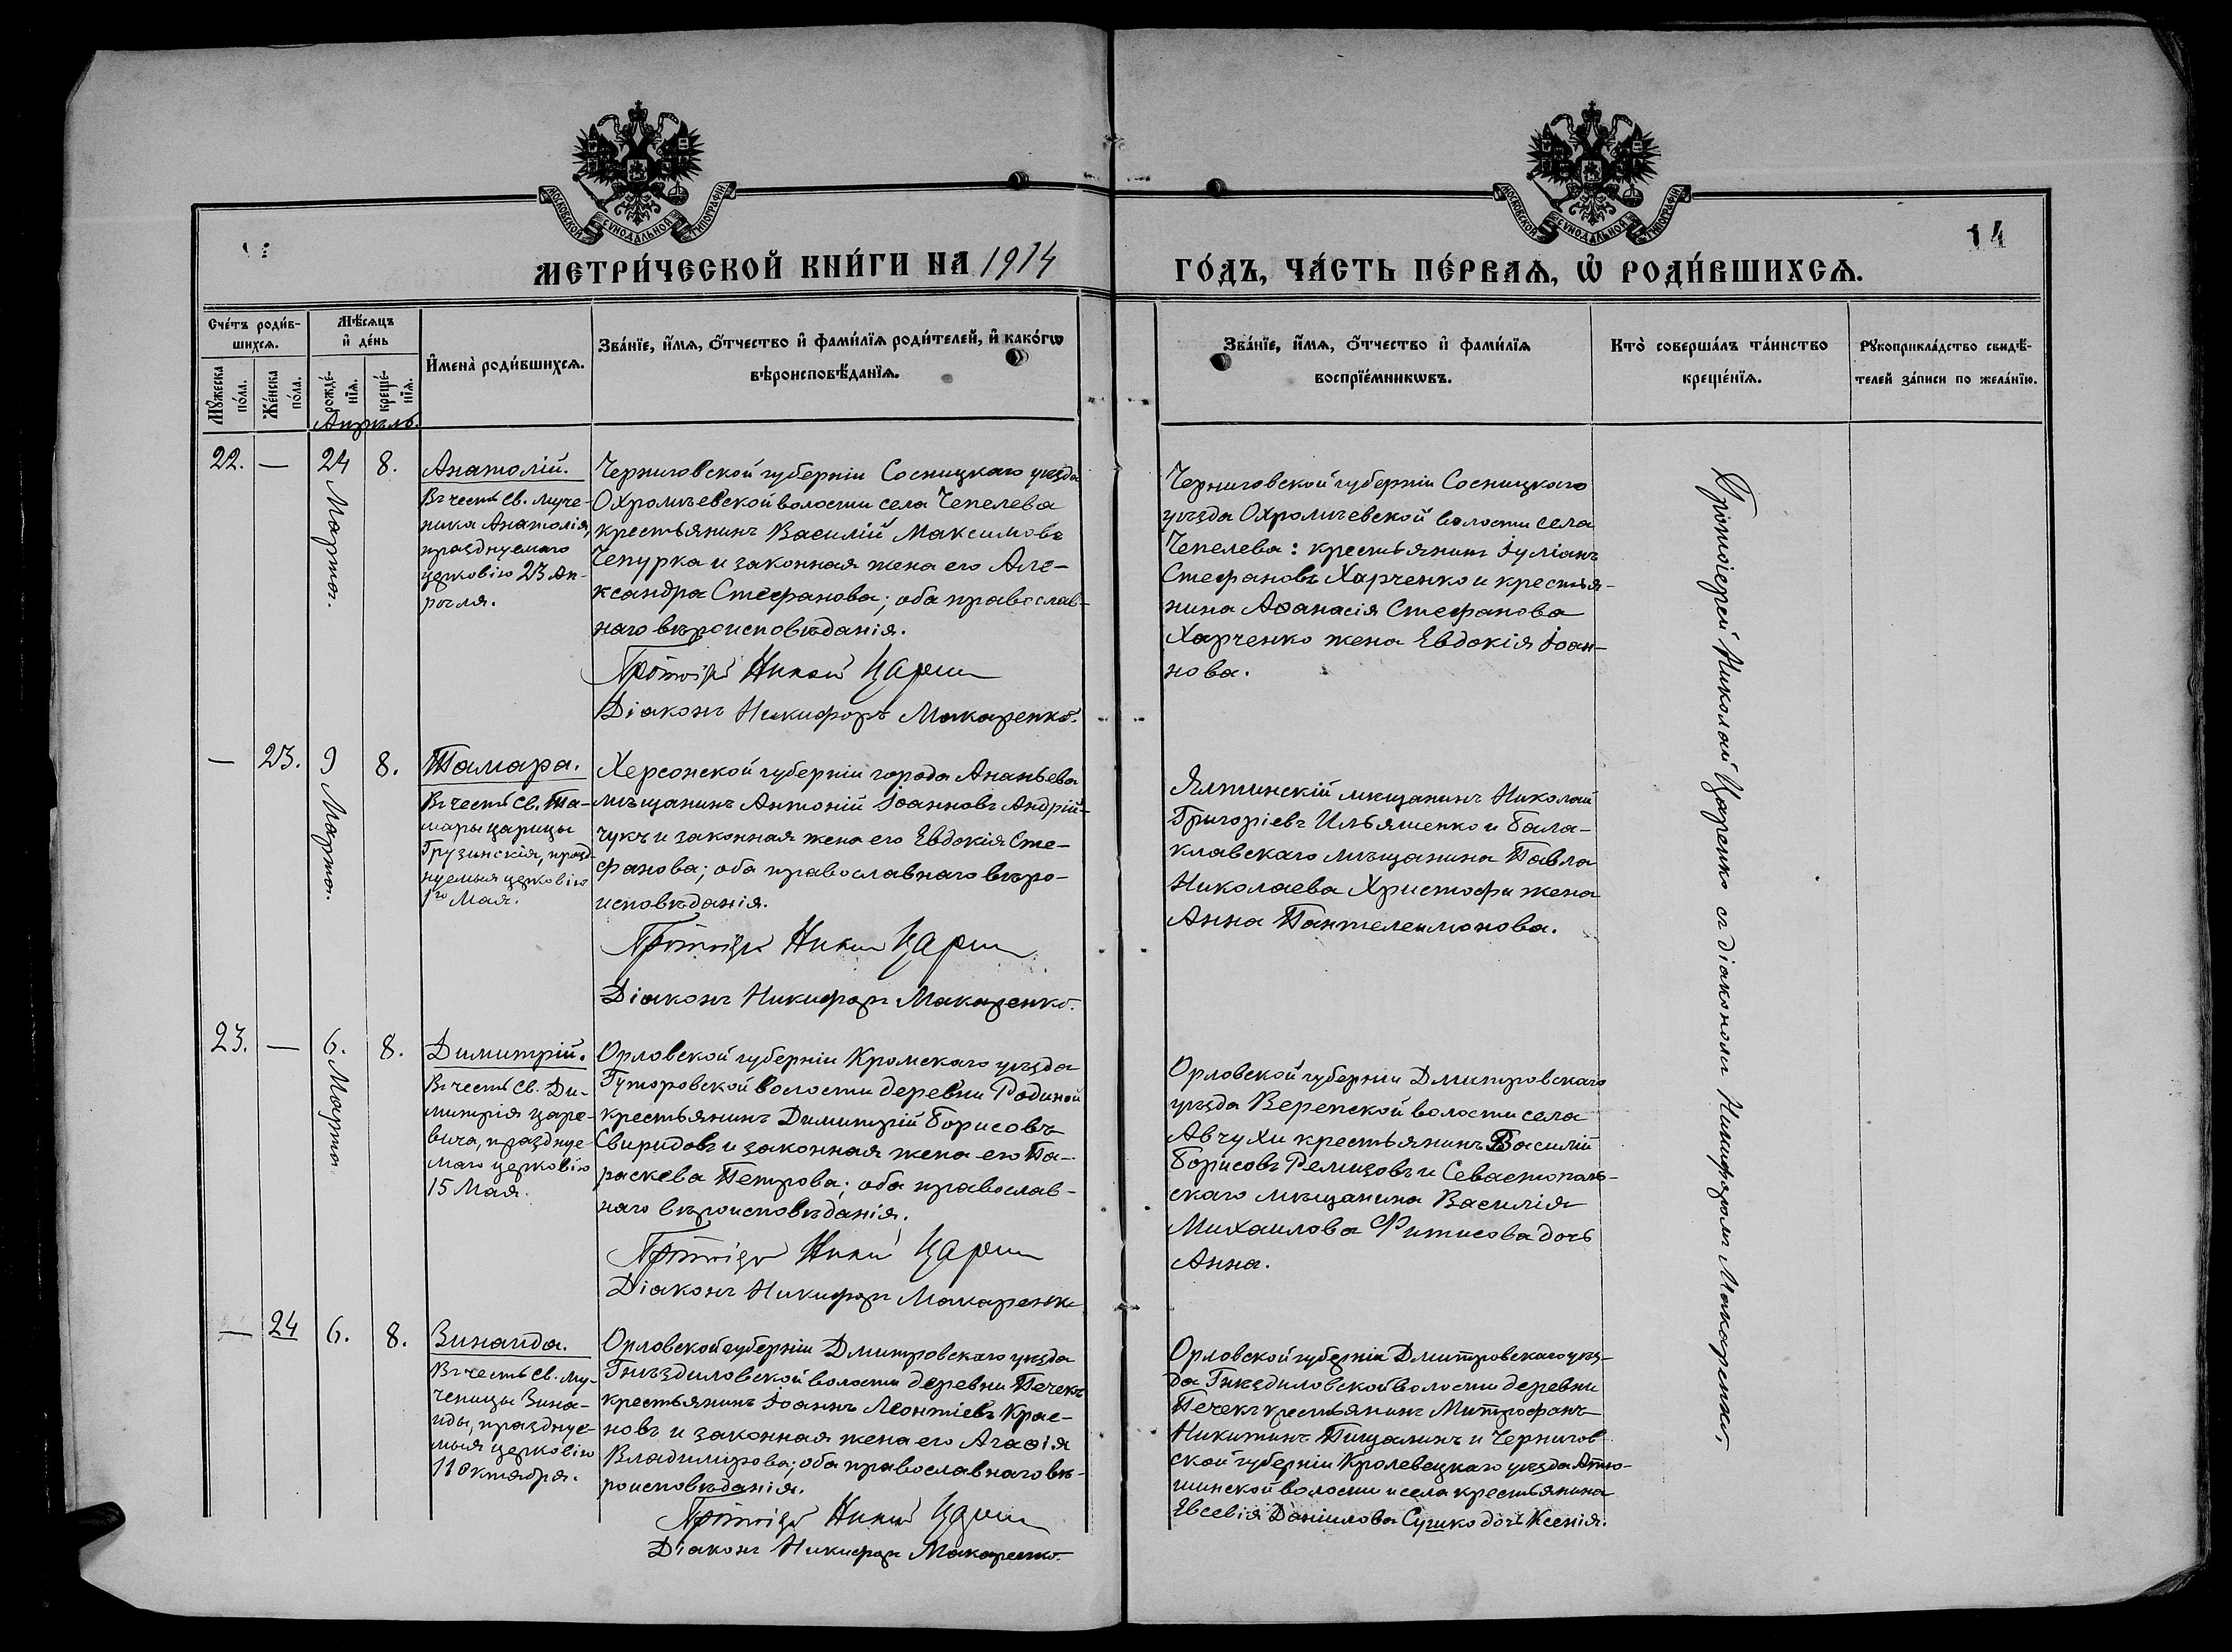 МОСКОВСКОЙ СѴНОДАЛЬНОЙ ТИПОГРАФІИ
МОСКОВСКОЙ СѴНОДАЛЬНОЙ ТИПОГРАФІИ
14
МЕТРИ́ЧЕСКОЙ КНИ́ГИ НА 1914
ГО́ДЪ, ЧА́СТЬ ПЕ́РВАѦ, Ѡ҆ РОДИ́ВШИХСѦ.
Сче́тъ роди́в-
шихсѧ.
Мѣ́сѧцъ
и҆ де́нь
И҆мена̀ роди́вшихсѧ.
Зва́нїе, и҆́мѧ, о҆́тчество и҆ фами́лїѧ роди́телей, и҆ како́гѡ
вѣроисповѣ́данїѧ.
Мꙋ́жеска
по́ла.
Же́нска
по́ла.
рожде́-
нїѧ.
креще́-
нїѧ.
Зва́нїе, и҆́мѧ, о҆́тчество и҆ фами́лїѧ
воспрїе́мникѡвъ.
Кто̀ соверша́лъ та́инство
креще́нїѧ.
Рꙋкоприкла́дство свидѣ́-
телей за́писи по жела́нїю.
Апрѣль.
22. — 24 Марта. 8.
Анатолій.
Въ честь Св. муче-
ника Анатолія,
празднуемаго
церковію 23 Ап-
рѣля.
Черниговской губерніи Сосницкаго уѣзда
Охромѣевской волости села Чепелева
крестьянинъ Василій Максимовъ
Чепурка и законная жена его Але-
ксандра Стефанова; оба православ-
наго вѣроисповѣданія.
Протоіерей Николай Царенко
Діаконъ Никифоръ Макаренко.
Черниговской губерніи Сосницкаго
уѣзда Охромѣевской волости села
Чепелева: крестьянинъ Іуліанъ
Стефановъ Харченко и крестья-
нина Аѳанасія Стефанова
Харченко жена Евдокія Іоан-
нова.
Протоіерей Николай Царенко съ діакономъ Никифоромъ Макаренко.
— 23. 9 Марта. 8.
Тамара.
Въ честь Св. Та-
мары царицы
Грузинскія, празд-
нуемыя церковію
1го Мая.
Херсонской губерніи города Ананьева
мѣщанинъ Антоній Іоанновъ Андрій-
чукъ и законная жена его Евдокія Сте-
фанова; оба православнаго вѣро-
исповѣданія.
Протоіерей Николай Царенко
Діаконъ Никифоръ Макаренко.
Ялтинскій мѣщанинъ Николай
Григоріевъ Ильяшенко и Бала-
клавскаго мѣщанина Павла
Николаева Христофи жена
Анна Пантелеимонова.
23. — 6. Марта 8.
Димитрій.
Въ честь Св. Ди-
митрія царе-
вича, празднуе-
маго церковію
15 Мая.
Орловской губерніи Кромскаго уѣзда
Гуторовской волости деревни Родиной
крестьянинъ Димитрій Борисовъ
Свиридовъ и законная жена его Па-
раскева Петрова; оба православ-
наго вѣроисповѣданія.
Протоіерей Николай Царенко
Діаконъ Никифоръ Макаренко
Орловской губерніи Дмитровскаго
уѣзда Верепской волости села
Авчухи крестьянинъ Василій
Борисовъ Ремизовъ и Севастополь-
скаго мѣщанина Василія
Михаилова Фитисова дочь
Анна.
— 24 6. 8.
Зинаида.
Въ честь Св. му-
ченицы Зина-
иды, празднуе-
мыя церковію
11 Октября.
Орловской губерніи Дмитровскаго уѣзда
Гнѣздиловской волости деревни Печекъ
крестьянинъ Іоаннъ Леонтіевъ Крас-
новъ и законная жена его Агаѳія
Владимірова; оба православнаго вѣ-
роисповѣданія.
Протоіерей Николай Царенко
Діаконъ Никифоръ Макаренко.
Орловской губерніи Дмитровскаго уѣз-
да Гнѣздиловской волости деревни
Печекъ крестьянинъ Митрофанъ
Никитинъ Пищалинъ и Чернигов-
ской губерніи Кролевецкаго уѣзда Атю-
шинской волости и села крестьянина
Евсевія Даніилова Сушко дочь Ксенія.